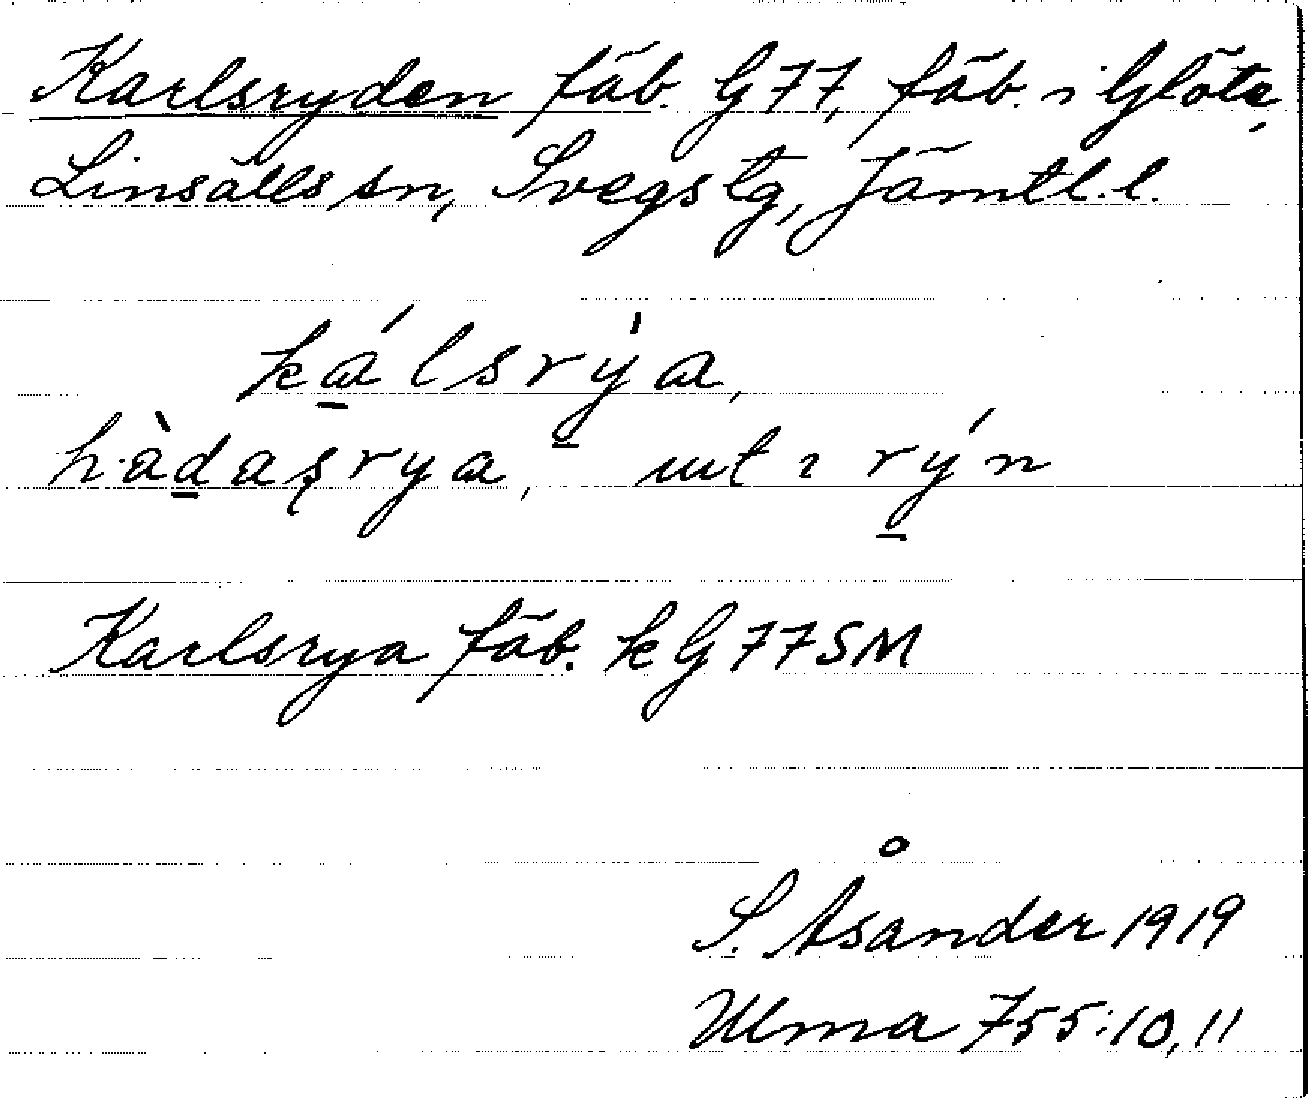 Karlsryden fäb. G 77, fäb. i Glöte,
Linsälls sn, Svegs tg, Jämtl. l.
kálsry̆a,
hàdasrya, ut ɩ rýn
Karlsrya fäb. k G 77 SM
S. Åsander 1919
Ulma 755:10,11